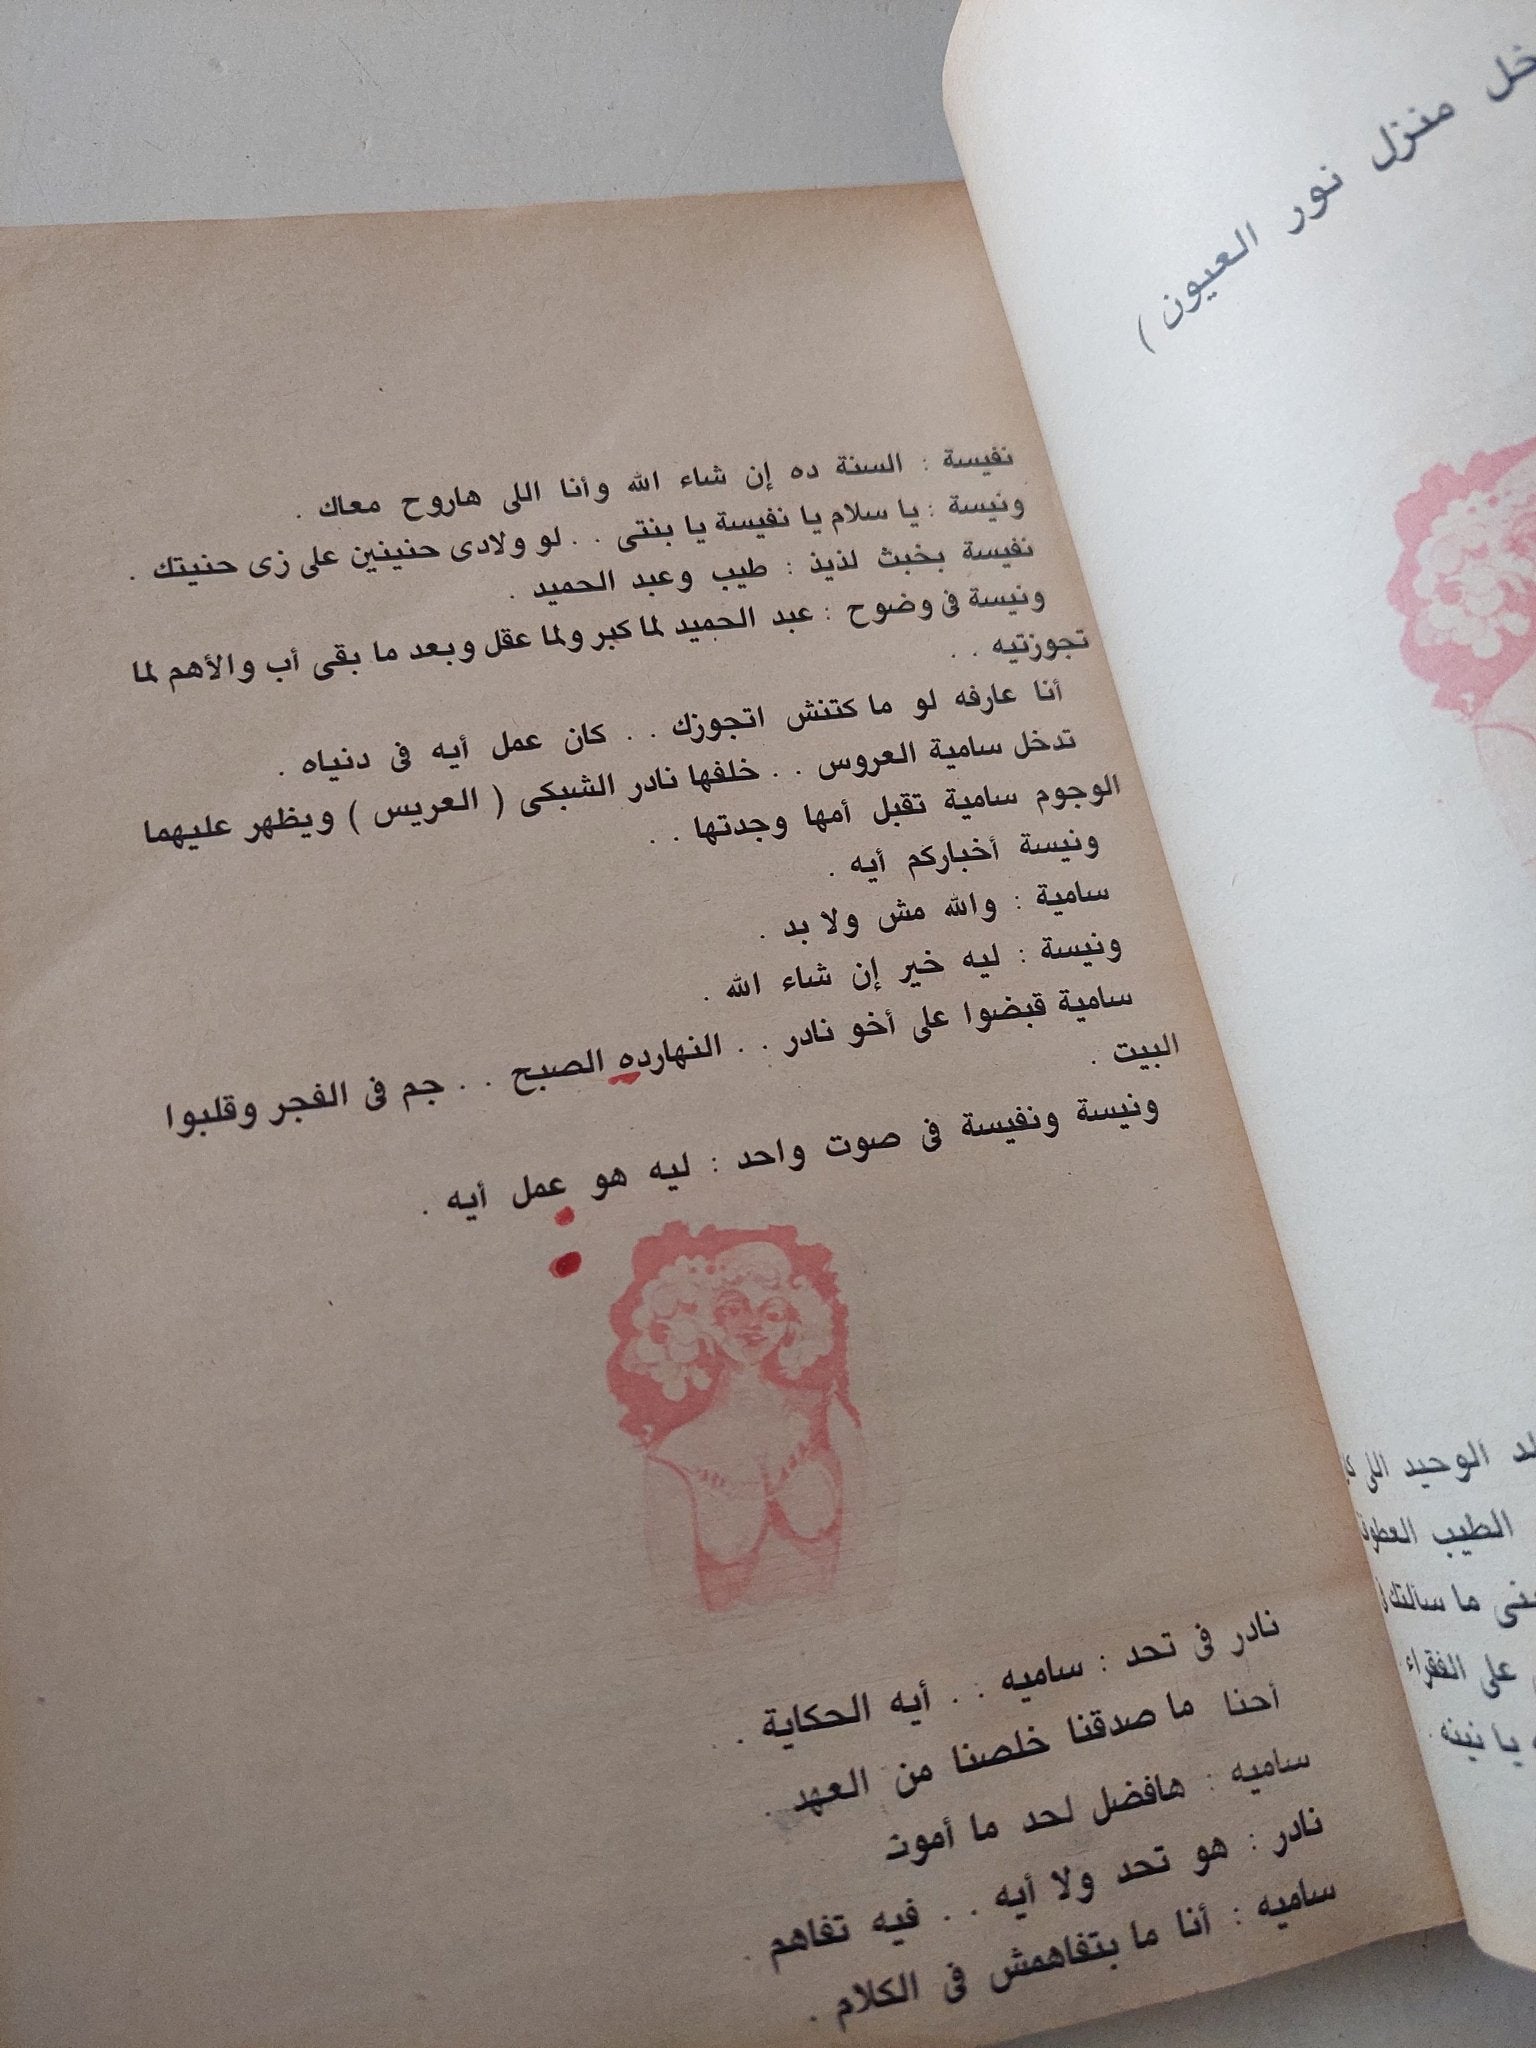 خل منزل نور العيون )
نفيسة : السنة ده إن شاء الله وأنا اللى هاروح معاك .
ونيسة : يا سلام يا نفيسة يا بنتى . . لو ولادى حنينين على زى حنيتك .
نفيسة بخبث لذيذ : طيب وعبد الحميد .
ونيسة فى وضوح : عبد الحميد لما كبر ولما عقل وبعد ما بقى أب والأهم لما
تجوزتيه . .
أنا عارفه لو ما كتنش اتجوزك . . كان عمل أيه فى دنياه .
تدخل سامية العروس . . خلفها نادر الشبكى ( العريس ) ويظهر عليهما
الوجوم سامية تقبل أمها وجدتها . .
ونيسة أخباركم أيه .
سامية : والله مش ولا بد .
ونيسة : ليه خير إن شاء الله .
سامية قبضوا على أخو نادر . . النهارده الصبح . . جم فى الفجر وقلبوا
البيت .
ونيسة ونفيسة فى صوت واحد : ليه هو عمل أيه .
نادر فى تحد : ساميه . . أيه الحكاية . .
أحنا ما صدقنا خلصنا من العهد .
ساميه : هافضل لحد ما أموت
نادر : هو تحد ولا أيه . . فيه تفاهم .
ساميه : أنا ما بتفاهمش فى الكلام .
الوحيد اللى
الطيب
ما سألتك
على الفقراء
يا نينه .